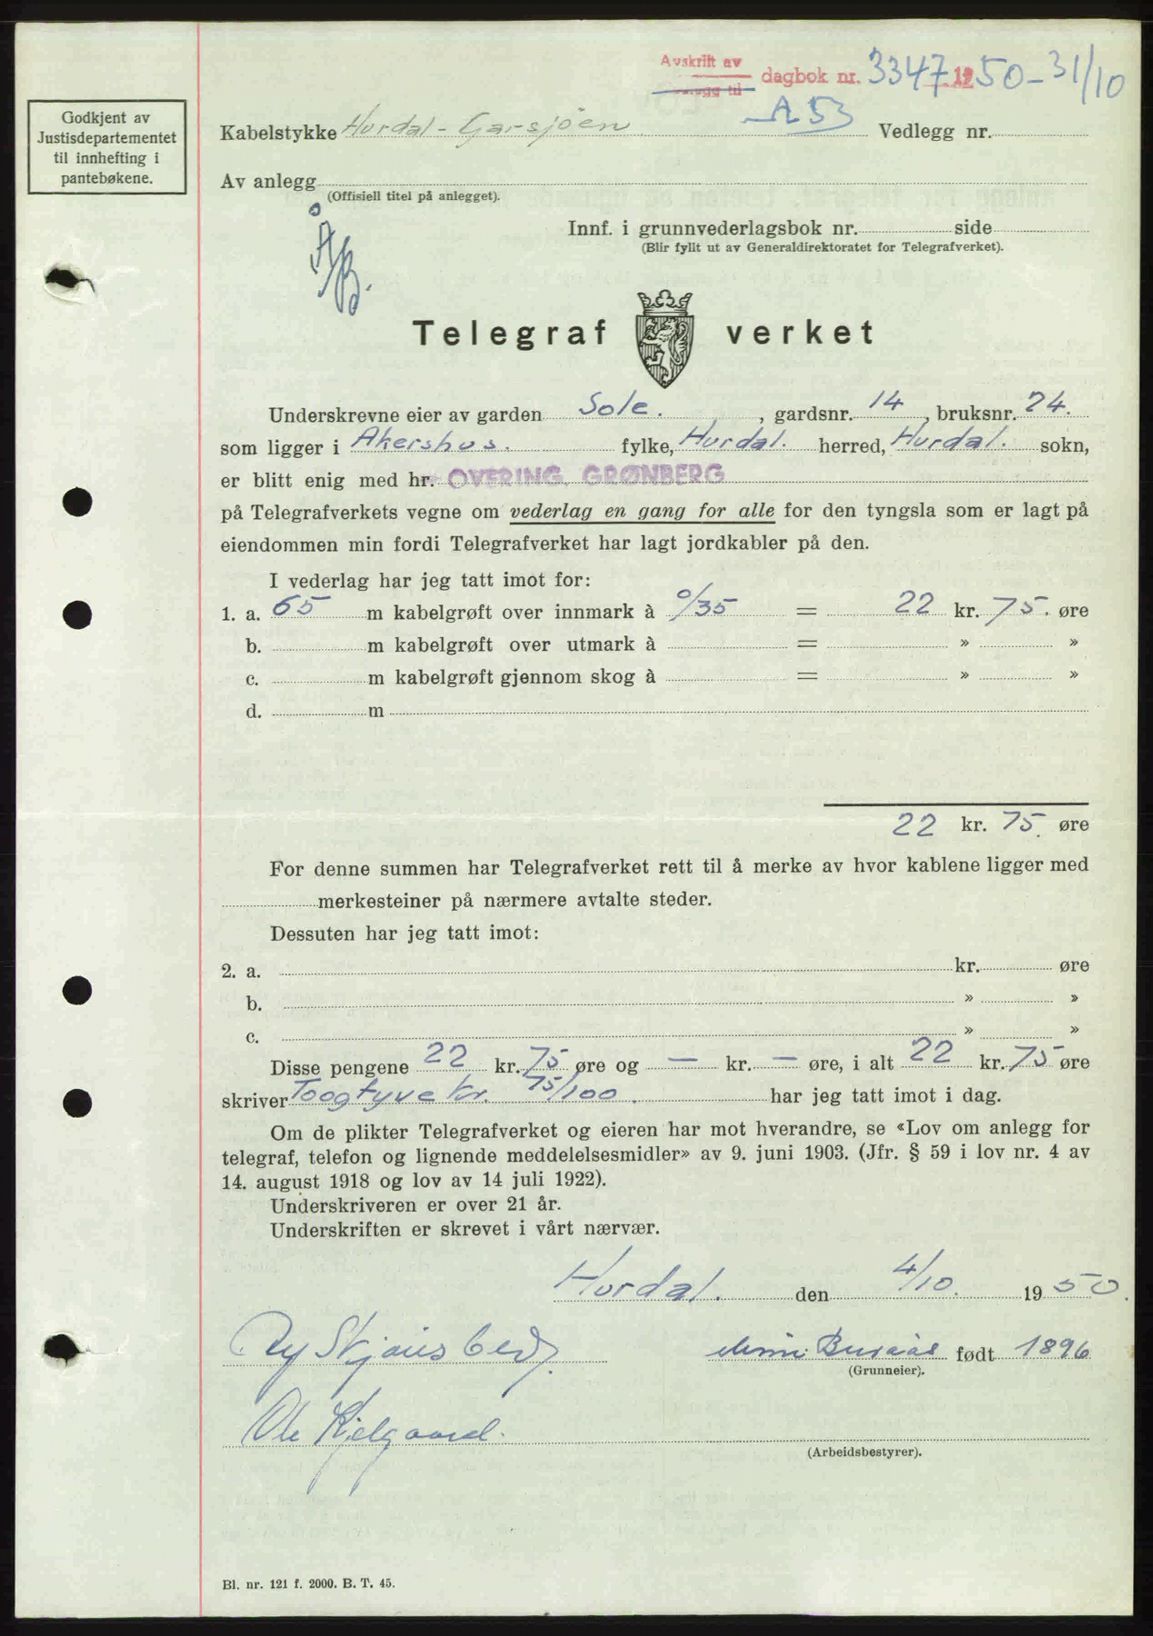 Avskrift av
dagbok nr. 3347 1950-31/10
A 53
Godkjent av
Justisdepartementet
til innhefting i
pantebøkene.
Kabelstykke Hurdal - Garsjøen Vedlegg nr.
Av anlegg
(Offisiell titel på anlegget).
Innf. i grunnvederlagsbok nr. side
(Blir fyllt ut av Generaldirektoratet for Telegrafverket).
Å/B.
Telegraf verket
Underskrevne eier av garden Sole. , gardsnr. 14 , bruksnr. 24.
som ligger i Akershus. fylke, Hurdal. herred, Hurdal. sokn,
er blitt enig med hr. OVERING. GRØNBERG
på Telegrafverkets vegne om vederlag en gang for alle for den tyngsla som er lagt på
eiendommen min fordi Telegrafverket har lagt jordkabler på den.
I vederlag har jeg tatt imot for:
1. a. 65 m kabelgrøft over innmark à 0/35 = 22 kr. 75. øre
b. m kabelgrøft over utmark à = » »
c. m kabelgrøft gjennom skog à = » »
d. m
22 kr. 75. øre
For denne summen har Telegrafverket rett til å merke av hvor kablene ligger med
merkesteiner på nærmere avtalte steder.
Dessuten har jeg tatt imot:
2. a. kr. øre
b. » »
c. » »
Disse pengene 22 kr. 75 øre og — kr. — øre, i alt 22 kr. 75 øre
skriver Toogtyve kr. 75/100. har jeg tatt imot i dag.
Om de plikter Telegrafverket og eieren har mot hverandre, se «Lov om anlegg for
telegraf, telefon og lignende meddelelsesmidler» av 9. juni 1903. (Jfr. § 59 i lov nr. 4 av
14. august 1918 og lov av 14 juli 1922).
Underskriveren er over 21 år.
Underskriften er skrevet i vårt nærvær.
Hurdal. den 4/10. 1950.
født 1896
(Grunneier).
Ole Kjelgaard.
(Arbeidsbestyrer).
Bl. nr. 121 f. 2000. B. T. 45.